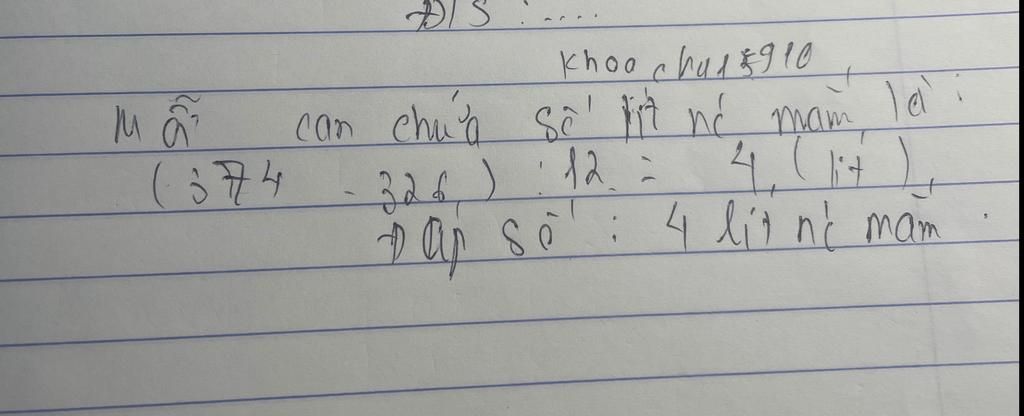 Đ/S : ....
Mỗi can chứa số lít nc mắm là :
( 374 - 326 ) : 12 = 4 ( lít )
Đáp số : 4 lít nc mắm .